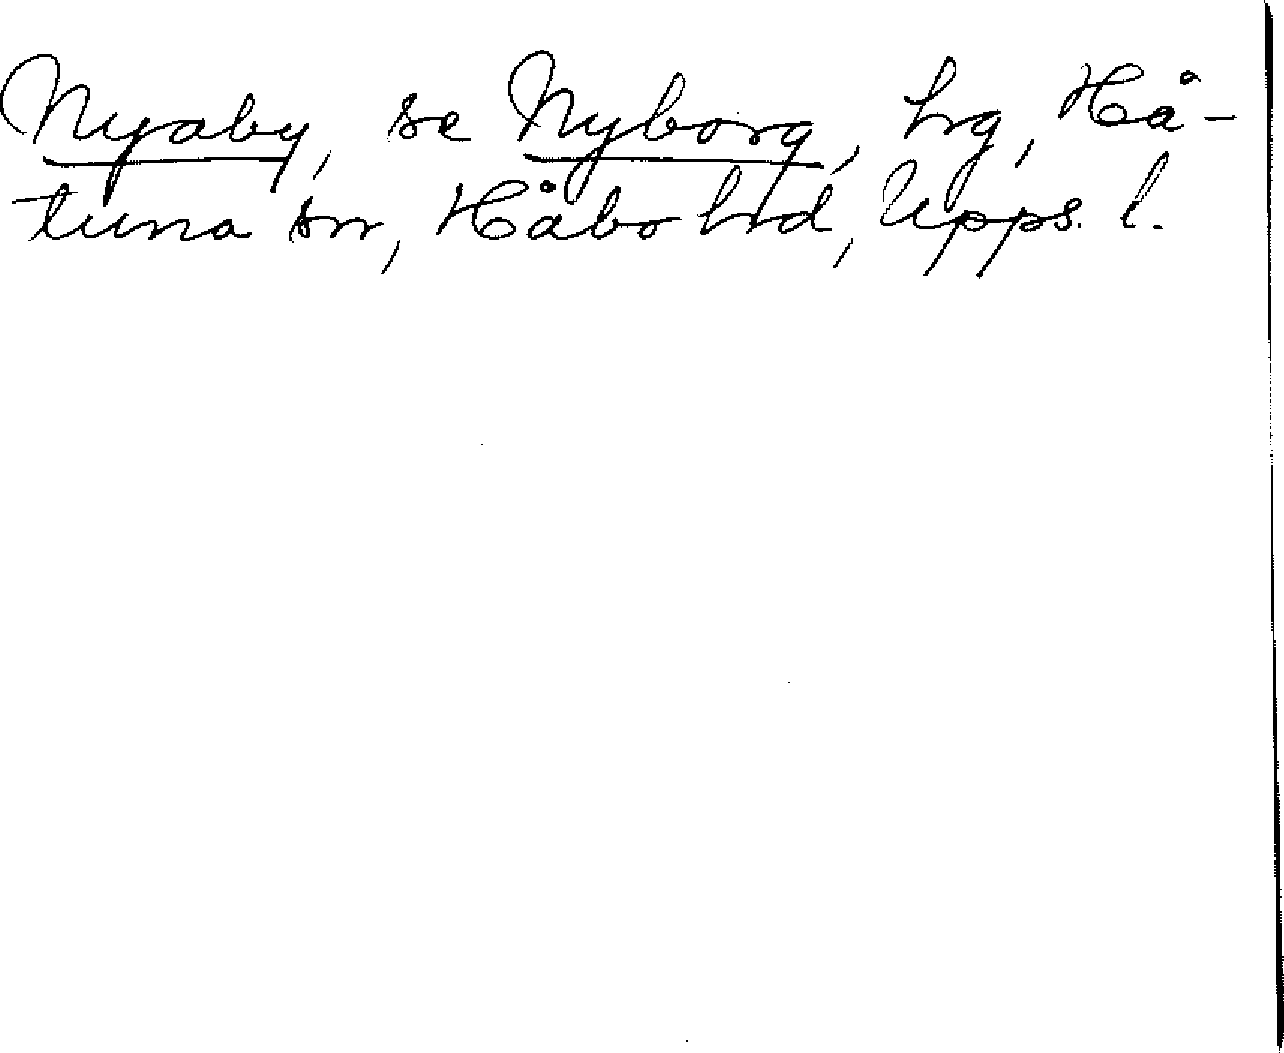 Nyaby, se Nyborg, hg, Hå-
tuna sn, Håbo hrd, Upps. l.